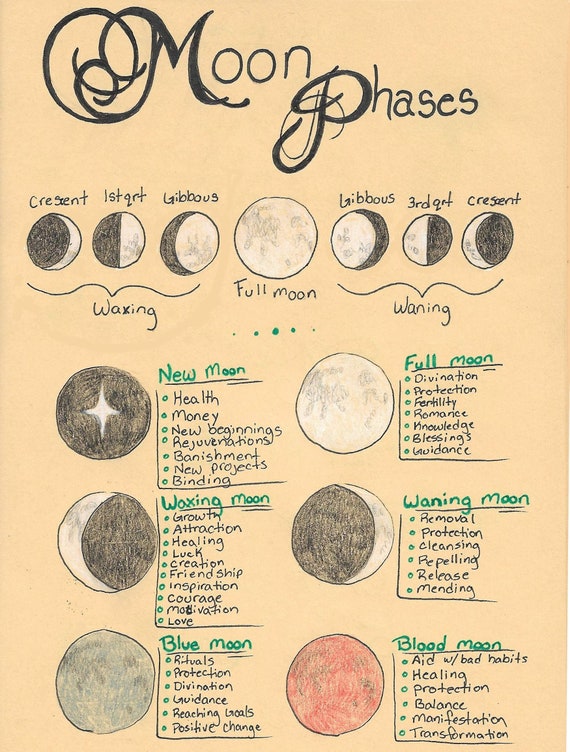 Moon Phases
Crescent 1st qrt Gibbous Gibbous 3rd qrt Crescent
Full moon
Waxing Waning
New Moon
Health
Money
New beginnings
Rejuvenations
Banishment
New projects
Binding
Full moon
Divination
Protection
Fertility
Romance
Knowledge
Blessings
Guidance
Waxing moon
Growth
Attraction
Healing
Luck
Creation
Friendship
Inspiration
Courage
Motivation
Love
Waning moon
Removal
Protection
Cleansing
Repelling
Release
Mending
Blue moon
Rituals
Protection
Divination
Guidance
Reaching Goals
Positive change
Blood moon
Aid w/bad habits
Healing
Protection
Balance
Manifestation
Transformation